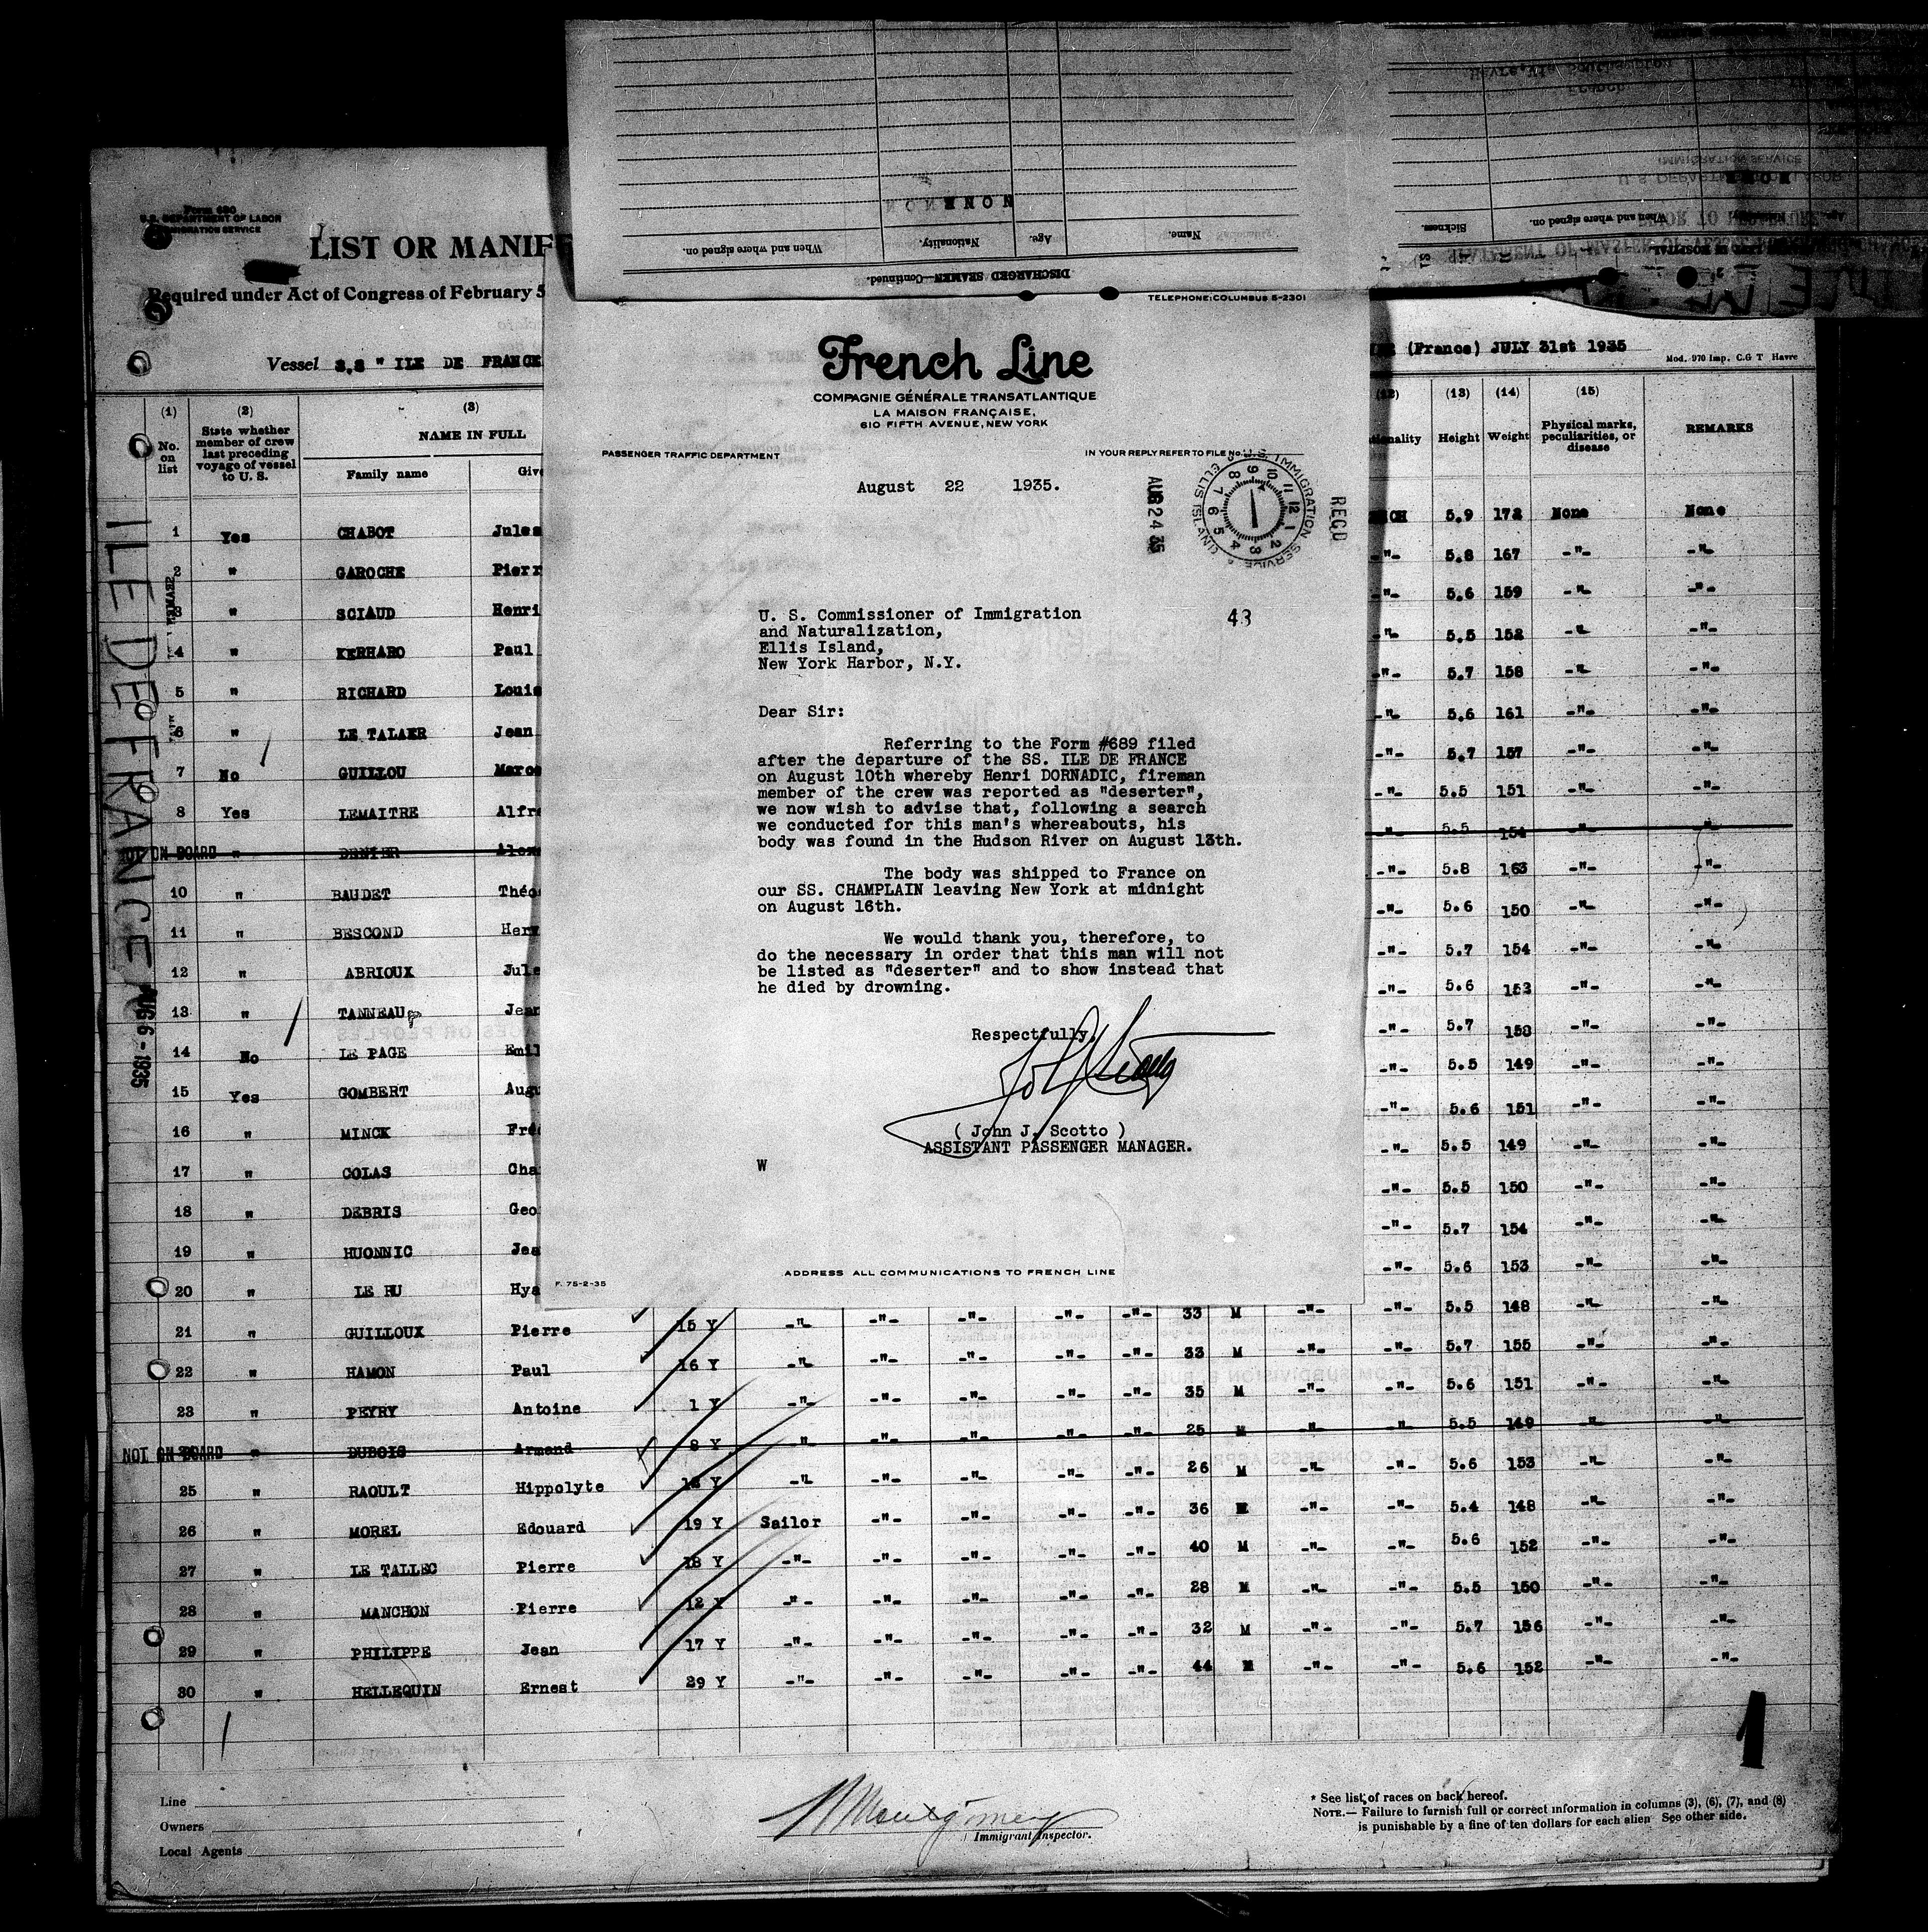 Form 680
U.S. DEPARTMENT OF LABOR
IMMIGRATION SERVICE
LIST OR MANIF
Required under Act of Congress of February 5
Vessel S.S " ILE DE FRANCE
DISCHARGED SEAMEN—Continued.
Name. Age. Nationality. When and where signed on.
NONE
Sickness.
When and where signed on.
(France) JULY 31st 1935
Mod. 970 Imp. C.G T Havre
TELEPHONE:COLUMBUS 5-2301
French Line
COMPAGNIE GÉNÉRALE TRANSATLANTIQUE
LA MAISON FRANÇAISE,
610 FIFTH AVENUE, NEW YORK
PASSENGER TRAFFIC DEPARTMENT
IN YOUR REPLY REFER TO FILE No.
August 22 1935.
AUG 24 35
U.S. IMMIGRATION SERVICE
ELLIS ISLAND
REC'D
43
U. S. Commissioner of Immigration
and Naturalization,
Ellis Island,
New York Harbor, N.Y.
Dear Sir:
Referring to the Form #689 filed
after the departure of the SS. ILE DE FRANCE
on August 10th whereby Henri DORNADIC, fireman
member of the crew was reported as "deserter",
we now wish to advise that, following a search
we conducted for this man's whereabouts, his
body was found in the Hudson River on August 13th.
The body was shipped to France on
our SS. CHAMPLAIN leaving New York at midnight
on August 16th.
We would thank you, therefore, to
do the necessary in order that this man will not
be listed as "deserter" and to show instead that
he died by drowning.
Respectfully,
( John J. Scotto )
ASSISTANT PASSENGER MANAGER.
W
ADDRESS ALL COMMUNICATIONS TO FRENCH LINE
F. 75-2-35
ILE DE FRANCE
AUG 6 - 1935
(1) (2) (3) (12) (13) (14) (15)
No. on list
State whether member of crew last preceding voyage of vessel to U. S.
NAME IN FULL
Family name Give
Height Weight
Physical marks, peculiarities, or disease
REMARKS
1 Yes CHABOT Jules 5.9 172 None None
2 " GAROCHE Pierr -"- 5.8 167 -"- -"-
3 " SCIAUD Henri -"- 5.6 159 -"- -"-
4 " KERHARO Paul -"- 5.5 152 -"- -"-
5 " RICHARD Louis -"- 5.7 158 -"- -"-
6 " LE TALAER Jean -"- 5.6 161 -"- -"-
7 No GUILLOU Marce -"- 5.7 157 -"- -"-
8 Yes LEMAITRE Alfre -"- 5.5 151 -"- -"-
NOT ON BOARD " DENIER Alex -"- 5.5 154 -"- -"-
10 " BAUDET Théo -"- 5.8 163 -"- -"-
11 " BESCOND Herv -"- 5.6 150 -"- -"-
12 " ABRIOUX Jule -"- 5.7 154 -"- -"-
13 " TANNEAU Jean -"- 5.6 153 -"- -"-
14 No LE PAGE Emil -"- 5.7 158 -"- -"-
15 Yes GOMBERT Augu -"- 5.5 149 -"- -"-
16 " MINCK Fré -"- 5.6 151 -"- -"-
17 " COLAS Cha -"- 5.5 149 -"- -"-
18 " DEBRIS Geo -"- 5.5 150 -"- -"-
19 " HUONNIC Jea -"- 5.7 154 -"- -"-
20 " LE RU Hya -"- 5.6 153 -"- -"-
21 " GUILLOUX Pierre 15 Y -"- -"- -"- -"- -"- 33 M -"- -"- 5.5 148 -"- -"-
22 " HAMON Paul 16 Y -"- -"- -"- -"- -"- 33 M -"- -"- 5.7 155 -"- -"-
23 " PEYRY Antoine 1 Y -"- -"- -"- -"- -"- 35 M -"- -"- 5.6 151 -"- -"-
NOT ON BOARD " DUBOIS Armand 8 Y -"- -"- -"- -"- -"- 25 M -"- -"- 5.5 149 -"- -"-
25 " RAOULT Hippolyte 12 Y -"- -"- -"- -"- -"- 26 M -"- -"- 5.6 153 -"- -"-
26 " MOREL Edouard 19 Y Sailor -"- -"- -"- -"- 36 M -"- -"- 5.4 148 -"- -"-
27 " LE TALLEC Pierre 18 Y -"- -"- -"- -"- -"- 40 M -"- -"- 5.6 152 -"- -"-
28 " MANCHON Pierre 12 Y -"- -"- -"- -"- -"- 28 M -"- -"- 5.5 150 -"- -"-
29 " PHILIPPE Jean 17 Y -"- -"- -"- -"- -"- 32 M -"- -"- 5.7 156 -"- -"-
30 " HELLEQUIN Ernest 29 Y -"- -"- -"- -"- -"- 44 M -"- -"- 5.6 152 -"- -"-
1
Line
Owners
Local Agents
Montgomery
Immigrant Inspector.
* See list of races on back hereof.
NOTE.— Failure to furnish full or correct information in columns (3), (6), (7), and (8)
is punishable by a fine of ten dollars for each alien See other side.